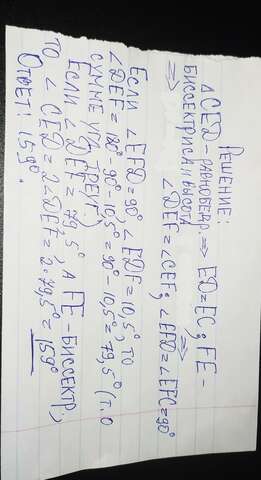 Решение:
△CED - равнобедр. ⇒ ED=EC; FE -
биссектриса и высота ⇒
⇒ ∠DEF = ∠CEF; ∠EFD = ∠EFC = 90°
Если ∠EFD = 90° ∠EDF = 10,5°, то
∠DEF = 180° - 90° - 10,5° = 90° - 10,5° = 79,5° (т. о
сумме угл. треуг.)
Если ∠DEF = 79,5°, а FE - биссектр.,
то ∠CED = 2∠DEF = 2·79,5° = 159°
Ответ: 159°.